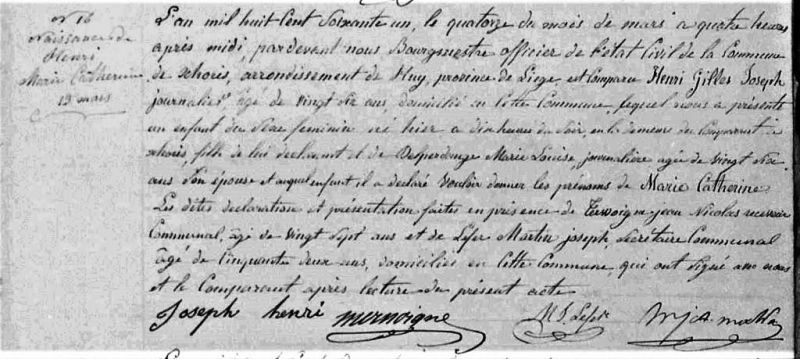 N° 16
Naissance de
Henri
Marie Catherine
13 mars
L'an mil huit cent soixante un, le quatorze du mois de mars a quatre heures
après midi, pardevant nous Bourgmestre officier de l'état Civil de la Commune
de xhoris, arrondissement de Huy, province de Liege est Comparu Henri Gilles Joseph
journalier âgé de vingt six ans, domicilié en cette Commune, lequel nous a présenté
un enfant du sexe feminin né hier a dix heures du soir, en la demeure du Comparant à
xhoris, fille de lui déclarant et de Desperdange Marie Louise, journalière agée de vingt six
ans son épouse et auquel enfant il a déclaré vouloir donner les prénoms de Marie Catherine
Les dites declaration et présentation faites en présence de jean Nicolas receveur
Communal, âgé de vingt sept ans et de Martin joseph, secrétaire Communal
âgé de Cinquante deux ans, domiciliés en cette Commune, qui ont signé avec nous
et le Comparant après lecture du présent acte
Joseph henri